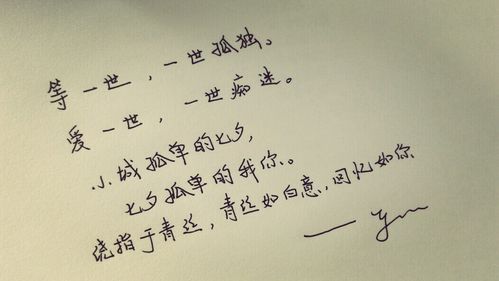 等一世，一世孤独。
爱一世，一世痴迷。
小城孤单的七夕，
七夕孤单的我你。
绕指于青丝，青丝如白意，回忆如你